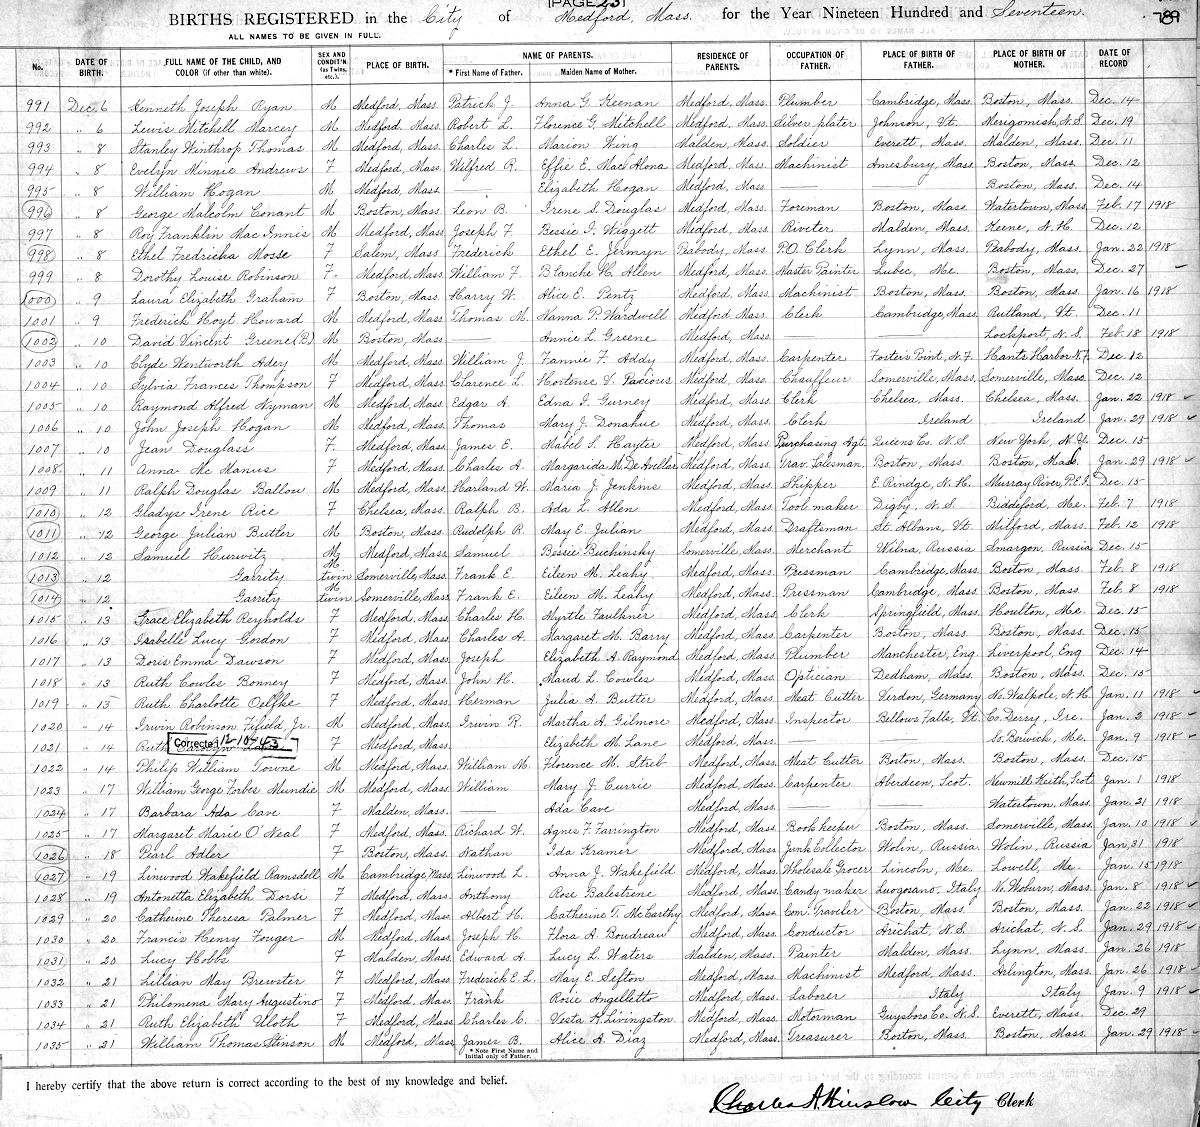 [PAGE 23]
BIRTHS REGISTERED in the City of Medford, Mass. for the Year Nineteen Hundred and Seventeen.
ALL NAMES TO BE GIVEN IN FULL.
No. DATE OF BIRTH. FULL NAME OF THE CHILD, AND COLOR (if other than white). SEX AND CONDIT'N (as Twins, etc.). PLACE OF BIRTH. NAME OF PARENTS. * First Name of Father. Maiden Name of Mother. RESIDENCE OF PARENTS. OCCUPATION OF FATHER. PLACE OF BIRTH OF FATHER. PLACE OF BIRTH OF MOTHER. DATE OF RECORD
991 Dec. 6 Kenneth Joseph Ryan M Medford, Mass. Patrick J. Anna G. Keenan Medford, Mass. Plumber Cambridge, Mass. Boston, Mass. Dec. 14
992 " 6 Lewis Mitchell Marcey M Medford, Mass. Robert L. Florence G. Mitchell Medford, Mass. Silver plater Johnson, Vt. Merigomish, N.S. Dec. 19
993 " 8 Stanley Winthrop Thomas M Medford, Mass. Charles L. Marion Wing Malden, Mass. Soldier Everett, Mass. Malden, Mass. Dec. 11
994 " 8 Evelyn Minnie Andrews F Medford, Mass. Wilfred R. Effie E. Mac Alona Medford, Mass. Machinist Amesbury, Mass. Boston, Mass. Dec. 12
995 " 8 William Hogan M Medford, Mass. —— Elizabeth Hogan Medford, Mass. —— Boston, Mass. Dec. 14
996 " 8 George Malcolm Conant M Boston, Mass. Leon B. Irene S. Douglas Medford, Mass. Foreman Boston, Mass. Watertown, Mass. Feb. 17 1918
997 " 8 Roy Franklin Mac Innis M Medford, Mass. Joseph F. Bessie I. Wiggett Medford, Mass. Riveter Malden, Mass. Keene, N.H. Dec. 12
998 " 8 Ethel Fredricka Mosse F Salem, Mass. Frederick Ethel E. Jermyn Peabody, Mass. P.O. Clerk Lynn, Mass. Peabody, Mass. Jan. 22 1918
999 " 8 Dorothy Louise Robinson F. Medford, Mass. William F. Blanche H. Allen Medford, Mass. Master Painter Lubec, Me. Boston, Mass. Dec. 27
1000 " 9 Laura Elizabeth Graham F Boston, Mass. Harry W. Alice E. Pentz Medford, Mass. Machinist Boston, Mass. Boston, Mass. Jan. 16 1918
1001 " 9 Frederick Hoyt Howard M Medford, Mass. Thomas M. Hanna P. Wardwell Medford, Mass. Clerk Cambridge, Mass. Rutland, Vt. Dec. 11
1002 " 10 David Vincent Greene (B) M Boston, Mass. —— Annie L. Greene Medford, Mass. Lockport, N.S. Feb. 18 1918
1003 " 10 Clyde Wentworth Adey M Medford, Mass. William J. Fannie F. Addy Medford, Mass. Carpenter Foster's Point, N.F. Hants Harbor N.F. Dec. 12
1004 " 10 Sylvia Frances Thompson F Medford, Mass. Clarence L. Hortense V. Pacious Medford, Mass. Chauffeur Somerville, Mass. Somerville, Mass. Dec. 12
1005 " 10 Raymond Alfred Nyman M Medford, Mass. Edgar A. Edna I. Gurney Medford, Mass. Clerk Chelsea, Mass. Chelsea, Mass. Jan. 22 1918
1006 " 10 John Joseph Hogan M Medford, Mass. Thomas Mary J. Donahue Medford, Mass. Clerk Ireland Ireland Jan. 29 1918
1007 " 10 Jean Douglass F. Medford, Mass. James E. Mabel S. Hayter Medford, Mass. Purchasing Agt. Queens Co. N.S. New York, N.Y. Dec. 15
1008 " 11 Anna Mc Manus F Medford, Mass. Charles A. Margarida M. De Avellar Medford, Mass. Trav. Salesman. Boston, Mass. Boston, Mass. Jan. 29 1918
1009 " 11 Ralph Douglas Ballou M Medford, Mass. Harland W. Maria J. Jenkins Medford, Mass. Shipper E. Rindge, N.H. Murray River, P.E.I. Dec. 15
1010 " 12 Gladys Irene Rice F Chelsea, Mass. Ralph B. Ada L. Allen Medford, Mass. Tool maker Digby, N.S. Biddeford, Me. Feb. 7 1918
1011 " 12 George Julian Butler M Boston, Mass. Rudolph R. May E. Julian Medford, Mass. Draftsman St. Albans, Vt. Milford, Mass. Feb. 12 1918
1012 " 12 Samuel Hurwitz M Medford, Mass. Samuel Bessie Buchinsky Somerville, Mass. Merchant Wilna, Russia Smargon, Russia Dec. 15
1013 " 12 Garrity M twin Somerville, Mass. Frank E. Eileen M. Leahy Medford, Mass. Pressman Cambridge, Mass. Boston, Mass. Feb. 8 1918
1014 " 12 Garrity M twin Somerville, Mass. Frank E. Eileen M. Leahy Medford, Mass. Pressman Cambridge, Mass. Boston, Mass. Feb. 8 1918
1015 " 13 Grace Elizabeth Reynolds F Medford, Mass. Charles H. Myrtle Faulkner Medford, Mass. Clerk Springfield, Mass. Houlton, Me. Dec. 15
1016 " 13 Isabelle Lucy Gordon F Medford, Mass. Charles A. Margaret M. Barry Medford, Mass. Carpenter Boston, Mass. Boston, Mass. Dec. 15
1017 " 13 Doris Emma Dawson F Medford, Mass. Joseph Elizabeth A. Raymond Medford, Mass. Plumber Manchester, Eng. Liverpool, Eng Dec. 14
1018 " 13 Ruth Cowles Bonney F Medford, Mass. John H. Maud L. Cowles Medford, Mass. Optician Dedham, Mass. Boston, Mass. Dec. 15
1019 " 13 Ruth Charlotte Oelfke F Medford, Mass. Herman Julia A. Butter Medford, Mass. Meat Cutter Verdon, Germany No. Walpole, N.H. Jan. 11 1918
1020 " 14 Irwin Robinson Fifield, Jr. M Medford, Mass. Irwin R. Martha A. Gilmore Medford, Mass. Inspector Bellows Falls, Vt. Co. Derry, Ire. Jan. 2 1918
1021 " 14 Ruth Corrected 12-10-43 F Medford, Mass. Elizabeth M. Lane Medford, Mass. —— So. Berwick, Me. Jan. 9 1918
1022 " 14 Philip William Towne M Medford, Mass. William M. Florence M. Streb Medford, Mass. Meat Cutter Boston, Mass. Boston, Mass. Dec. 15
1023 " 17 William George Forbes Mundie M Medford, Mass. William Mary J. Currie Medford, Mass. Carpenter Aberdeen, Scot. Newmill Keith, Scot Jan. 1 1918
1024 " 17 Barbara Ada Cave F Malden, Mass. —— Ada Cave Medford, Mass. —— Watertown, Mass. Jan. 21 1918
1025 " 17 Margaret Marie O'Neal F Medford, Mass. Richard W. Agnes F. Farrington Medford, Mass. Bookkeeper Boston, Mass. Somerville, Mass. Jan. 10 1918
1026 " 18 Pearl Adler F Boston, Mass. Nathan Ida Kramer Medford, Mass. Junk Collector Wolin, Russia. Wolin, Russia Jan. 31 1918
1027 " 19 Linwood Wakefield Ramsdell M Cambridge Mass. Linwood L. Anna J. Wakefield Medford, Mass. Wholesale Grocer Lincoln, Me. Lowell, Me. Jan. 15 1918
1028 " 19 Antonetta Elizabeth Dorsi F Medford, Mass. Anthony Rose Balestrene Medford, Mass. Candy maker Luogosano, Italy No. Woburn, Mass. Jan. 8 1918
1029 " 20 Catherine Theresa Palmer F Medford, Mass. Albert H. Catherine T. Mc Carthy Medford, Mass. Com. Traveler Boston, Mass. Boston, Mass. Jan. 22 1918
1030 " 20 Francis Henry Fouger M Medford, Mass. Joseph H. Flora A. Boudreau Medford, Mass. Conductor Arichat, N.S. Arichat, N.S. Jan. 29 1918
1031 " 20 Lucy Hobbs F Malden, Mass. Edward A. Lucy L. Waters Malden, Mass. Painter Malden, Mass. Lynn, Mass. Jan. 26 1918
1032 " 21 Lillian May Brewster F Medford, Mass. Frederick E. L. May E. Sefton Medford, Mass. Machinist Medford, Mass. Arlington, Mass. Jan. 26 1918
1033 " 21 Philomena Mary Augustino F Medford, Mass. Frank Rosie Angelletto Medford, Mass. Laborer Italy Italy Jan. 9 1918
1034 " 21 Ruth Elizabeth Uloth F Medford, Mass. Charles C. Vesta K. Livingston Medford, Mass. Motorman Guysboro Co. N.S. Everett, Mass. Dec. 29
1035 " 21 William Thomas Stinson M Medford, Mass. James B. Alice A. Diaz Medford, Mass. Treasurer Boston, Mass. Boston, Mass. Jan. 29 1918
* Note First Name and Initial only of Father.
I hereby certify that the above return is correct according to the best of my knowledge and belief.
Charles A. Winslow City Clerk